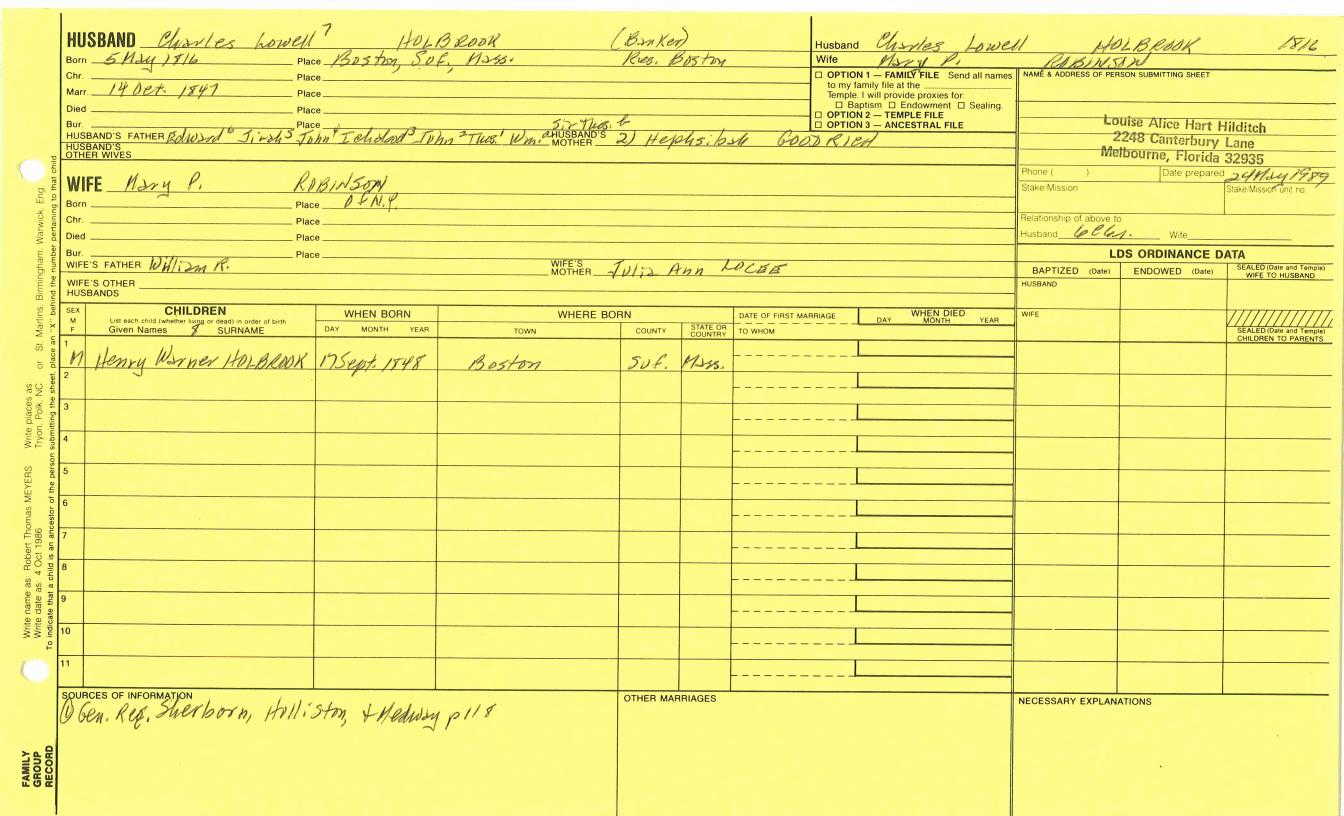 HUSBAND Charles Lowell 7 HOLBROOK (Banker)
Born 5 May 1816 Place Boston, Suf, Mass. Res. Boston
Chr. Place
Marr. 14 Oct. 1847 Place
Died Place
Bur. Place
HUSBAND'S FATHER Edward 6 Jirah 5 John 4 Ichabod 3 John 2 Thos 1 Wm. Sir Thos. HUSBAND'S MOTHER 2) Hephsibah GOODRICH
HUSBAND'S OTHER WIVES
WIFE Mary P. ROBINSON
Born Place of N.Y.
Chr. Place
Died Place
Bur. Place
WIFE'S FATHER William R. WIFE'S MOTHER Julia Ann
WIFE'S OTHER HUSBANDS
Husband Charles Lowell HOLBROOK 1816
Wife Mary P. ROBINSON
☐ OPTION 1 — FAMILY FILE Send all names
to my family file at the
Temple. I will provide proxies for:
☐ Baptism ☐ Endowment ☐ Sealing.
☐ OPTION 2 — TEMPLE FILE
☐ OPTION 3 — ANCESTRAL FILE
NAME & ADDRESS OF PERSON SUBMITTING SHEET
Louise Alice Hart Hilditch
2248 Canterbury Lane
Melbourne, Florida 32935
Phone ( ) Date prepared 24 May 1989
Stake/Mission Stake/Mission unit no.
Relationship of above to
Husband 6C6r. Wife
LDS ORDINANCE DATA
BAPTIZED (Date) ENDOWED (Date) SEALED (Date and Temple) WIFE TO HUSBAND
HUSBAND
WIFE
SEALED (Date and Temple) CHILDREN TO PARENTS
SEX M F
CHILDREN
List each child (whether living or dead) in order of birth
Given Names 8 SURNAME
WHEN BORN
DAY MONTH YEAR
WHERE BORN
TOWN COUNTY STATE OR COUNTRY
DATE OF FIRST MARRIAGE
TO WHOM
WHEN DIED
DAY MONTH YEAR
1 M Henry Warner HOLBROOK 17 Sept. 1848 Boston Suf. Mass.
2
3
4
5
6
7
8
9
10
11
SOURCES OF INFORMATION
① Gen. Reg. Sherborn, Holliston, & Medway p 118
OTHER MARRIAGES
NECESSARY EXPLANATIONS
Write name as: Robert Thomas MEYERS Write places as: Tryon, Polk, NC or St. Martins, Birmingham, Warwick, Eng.
Write date as: 4 Oct 1986
To indicate that a child is an ancestor of the person submitting the sheet, place an "X" behind the number pertaining to that child.
FAMILY
GROUP
RECORD